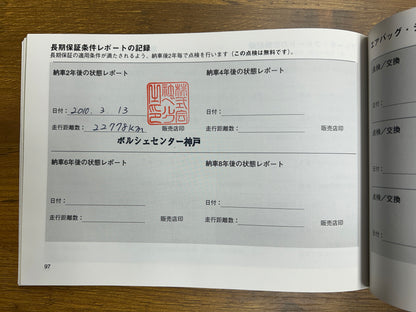 長期保証条件レポートの記録
長期保証の適用条件が満たされるよう、納車後2年毎で点検を行います（この点検は無料です）。
納車2年後の状態レポート
納車4年後の状態レポート
日付：2010. 3. 13
日付：
走行距離数：22778km
販売店印
走行距離数：
販売店印
ポルシェセンター神戸
納車6年後の状態レポート
納車8年後の状態レポート
日付：
日付：
走行距離数：
販売店印
走行距離数：
販売店印
97
エアバッグ・
点検／交換
点検／交換
点検／交換